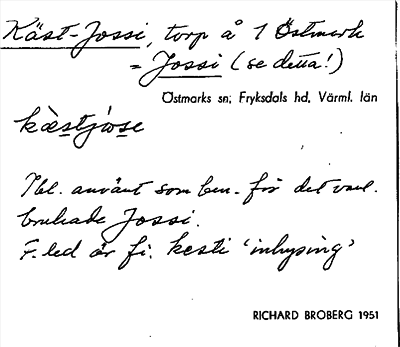 Käst-Jossi, torp å 1 Östmark
= Jossi (se detta!)
Östmarks sn, Fryksdals hd, Värml. län
kæstjose
Ibl. använt som ben. för det vanl.
brukade Jossi.
F. led är fi. kesti 'inhysing'
RICHARD BROBERG 1951